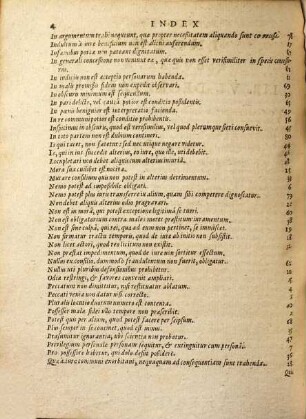 4 INDEX
In argumentum trahi nequeunt, quæ propter necessitatem aliquando sunt concessa.
Indultum à iure beneficium non est alicui auferendum.
Infamibus portæ non pateant dignitatum.
In generali concessione non veniunt ea, quæ quis non esset verisimiliter in specie concessurus.
In iudiciis non est acceptio personarum habenda.
In malis promissis fidem non expedit observari.
In obscuris minimum est sequendum.
In pari delicto, vel causa potior est conditio possidentis.
In pœnis benignior est interpretatio facienda.
In re communi potior est conditio prohibentis.
Inspicimus in obscuris, quod est verisimilius, vel quod plerumque fieri consuevit.
In toto partem non est dubium contineri.
Is qui tacet, non fatetur: sed nec utique negare videtur.
Is, qui in ius succedit alterius, eo iure, quo ille, uti debebit.
Locupletari non debet aliquis cum alterius iniuria
Mora sua cuilibet est nociva.
Mutare consilium quis non potest in alterius detrimentum.
Nemo potest ad impossibile obligari.
Nemo potest plus iuris transferre in alium, quam sibi competere dignoscatur.
Non debet aliquis alterius odio prægravari.
Non est in mora, qui potest exceptione legitima se tueri.
Non est obligatorium contra bonos mores præstitum iuramentum.
Non est sine culpa, qui rei, quæ ad eum non pertinet, se immiscet.
Non firmatur tractu temporis, quod de iure ab initio non subsistit.
Non licet actori, quod reo licitum non existit.
Non præstat impedimentum, quod de iure non sortitur effectum.
Nullus ex consilio, dummodo fraudulentum non fuerit, obligatur.
Nullus pluribus uti defensionibus prohibetur.
Odia restringi, & favores convenit ampliari.
Peccatum non dimittitur, nisi restituatur ablatum.
Peccati venia non datur nisi correcto.
Pluralis locutio duorum numero est contenta.
Possessor malæ fidei ullo tempore non præscribit.
Potest quis per alium, quod potest facere per seipsum.
Plus semper in se continet, quod est minus.
Præsumitur ignorantia, ubi scientia non probatur.
Privilegium personale personam sequitur, & extinguitur cum persona.
Pro possessore habetur, qui dolo desiit possidere.
Quæ à iure communi exorbitant, nequaquam ad consequentiam sunt trahenda.